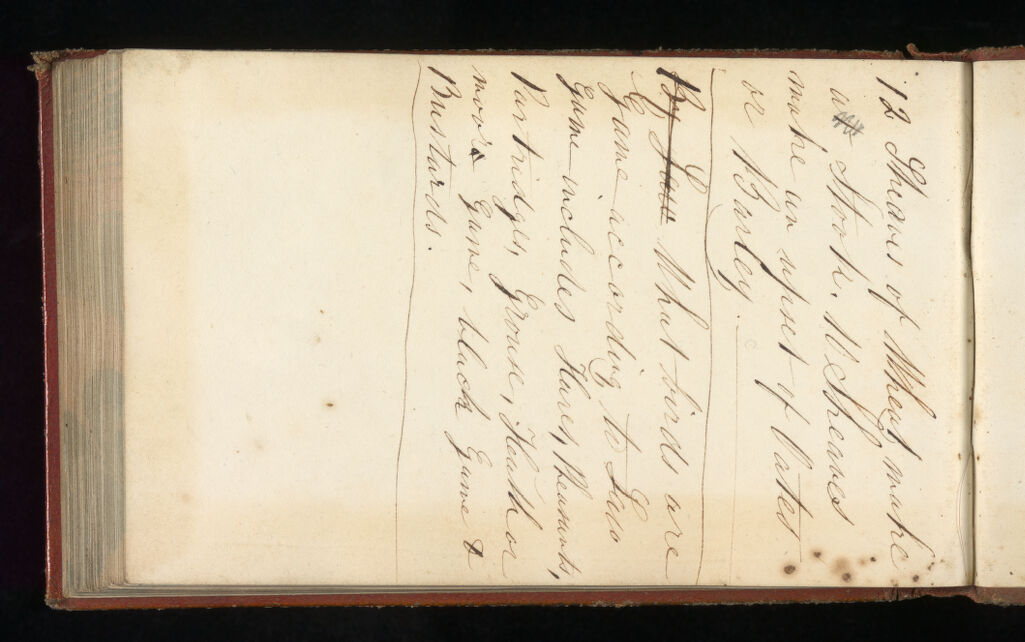 12 Sheaves of Wheat make
a Stook. 10 Sheaves
make an upset of Oates
or Barley.
By Law What birds are
Game according to Law
Game includes Hares, Pheasants,
Partridges, Grouse, Heath or
moor Game, black Game &
Bustards.